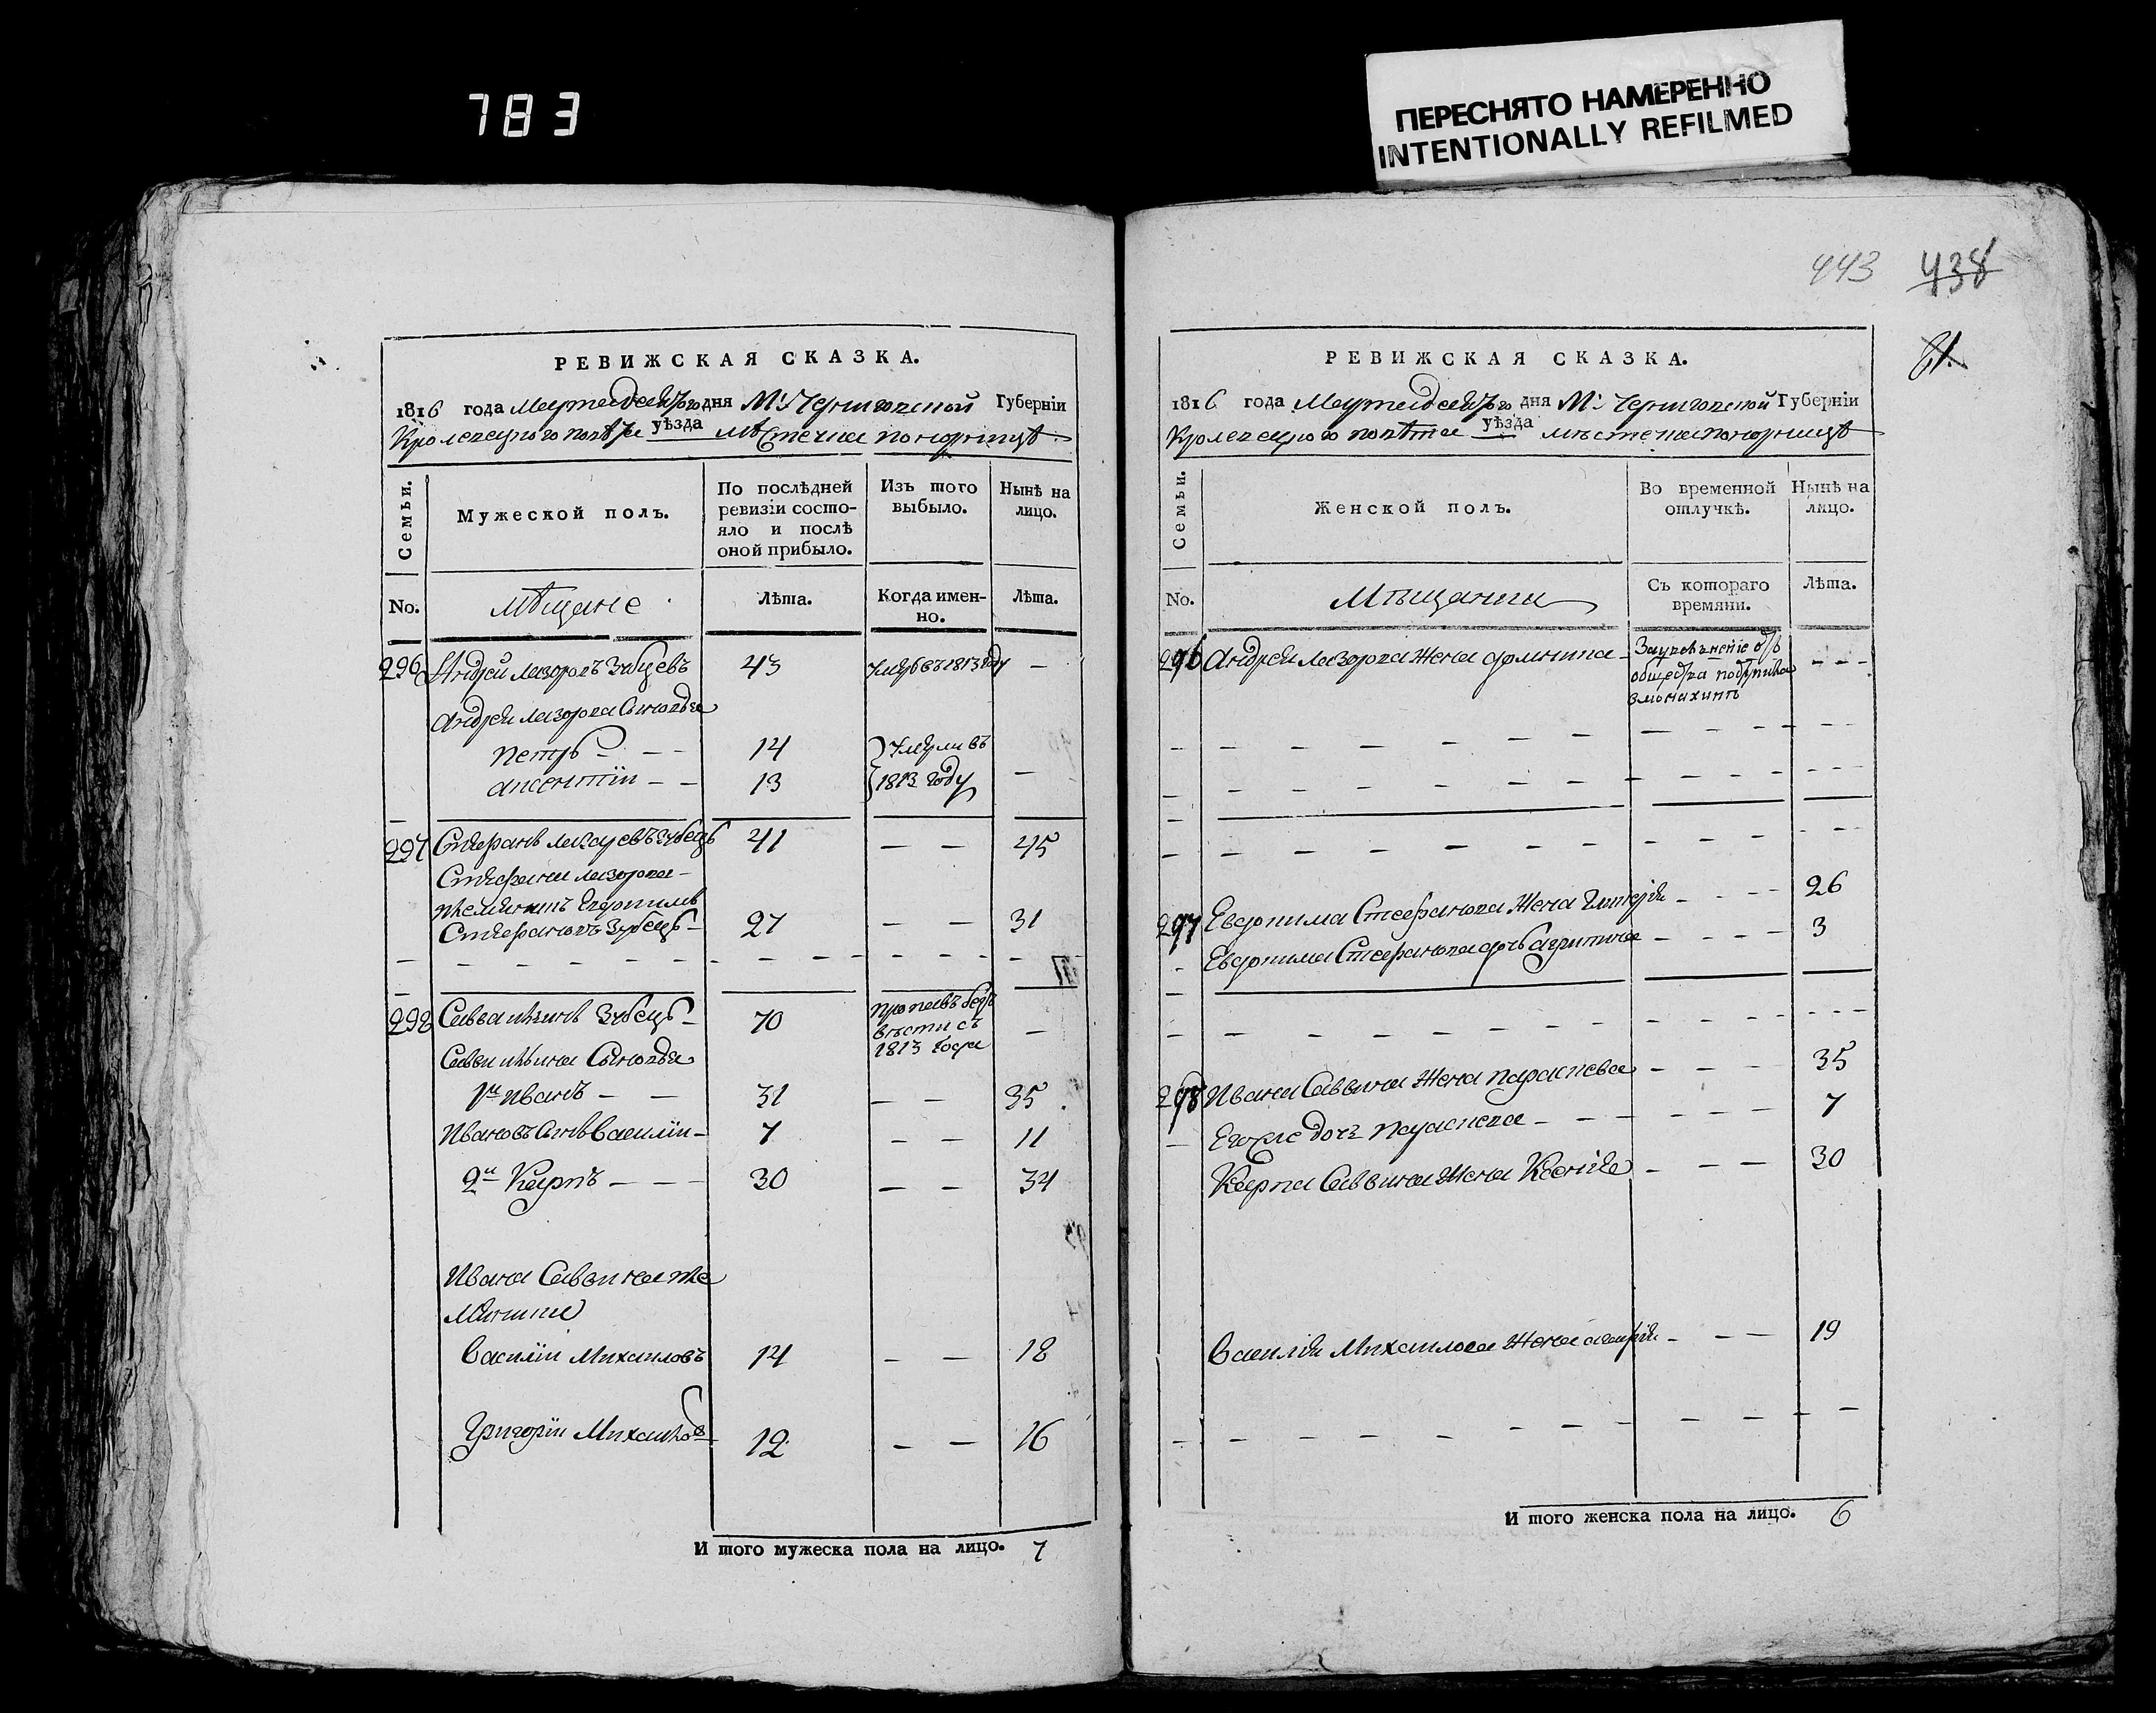 783
ПЕРЕСНЯТО НАМЕРЕННО
INTENTIONALLY REFILMED
443 438
РЕВИЖСКАЯ СКАЗКА.
1816 года Марта дня Ч: Черниговской Губерніи
Кролевецкого повѣта уѣзда мѣстечка понорницѣ
Семьи.
Мужеской полъ.
По послѣдней
ревизіи состо-
яло и послѣ
оной прибыло.
Изъ того
выбыло.
Нынѣ на
лицо.
No.
Мѣщане
Лѣта.
Когда имен-
но.
Лѣта.
296 Андрей Лазоровъ Зубцевъ 43 Умре въ 1813 году —
Андрея Лазорова Сыновья
Петръ — — 14 Умерли въ
Авсентіи — — 13 1813 году —
297 Стефанъ Зубецъ 41 — — 45
Стефана Лазорова —
племянникъ Евфимъ
Стефановъ Зубецъ — 27 — — 31
298 Савва Зубецъ — 70 пропавъ безъ
вѣсти съ
1813 года —
Саввы Сыновья
1й Иванъ — — 31 — — 35
Ивановъ Сынъ Василіи — 7 — — 11
2й Карпъ — — — 30 — — 34
Ивана Саввина пле
мянники
Василіи Михаиловъ 14 — — 18
Григоріи Михайловъ 12 — — 16
И того мужеска пола на лицо. 7
РЕВИЖСКАЯ СКАЗКА.
1816 года Марта дня Ч: Черниговской Губерніи
Кролевецкого повѣта уѣзда мѣстечка понорницѣ
Семьи.
Женской полъ.
Во временной
отлучкѣ.
Нынѣ на
лицо.
No.
Мѣщанки
Съ котораго
времяни.
Лѣта.
296 Андрея Лазорова жена Домникия — — — —
297 Евфима Стефанова жена Гликерія — — — — 26
Евфима Стефанова дочь Агрипина — — — — 3
298 Ивана Саввина жена Параскева — — — 35
Его же дочь Параскева — — — — — — 7
Карпа Саввина жена Ксенія — — — 30
Василія Михаилова жена — — — 19
И того женска пола на лицо. 6